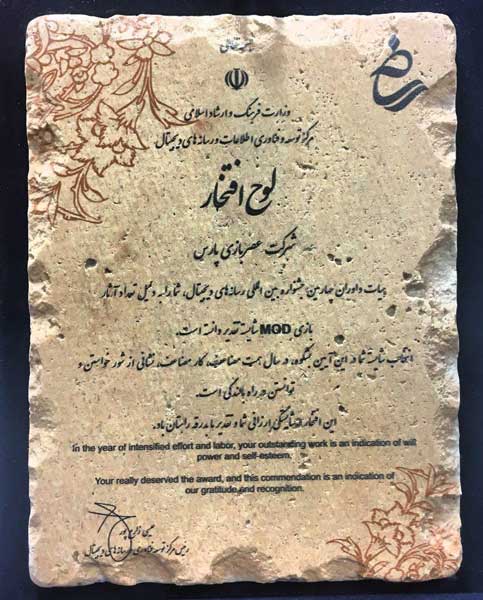 بسمه تعالی
وزارت فرهنگ و ارشاد اسلامی
مرکز توسعه و فناوری اطلاعات و رسانه های دیجیتال
لوح افتخار
شرکت عصر بازی پارس
هیات داوران چهارمین جشنواره بین المللی رسانه های دیجیتال، شما را به دلیل تعداد آثار
بازی MOD شایسته تقدیر دانسته است.
انتخاب شایسته شما در این آیین باشکوه، در سال همت مضاعف، کار مضاعف، نشانی از شور خواستن و
توانستن در راه بالندگی است.
این افتخار شایستگی ارزانی شما و تقدیر ما بدرقه راهتان باد.
In the year of intensified effort and labor, your outstanding work is an indication of will
power and self-esteem.
Your really deserved the award, and this commendation is an indication of
our gratitude and recognition.
عیسی زارع پور
رییس مرکز توسعه فناوری و رسانه های دیجیتال